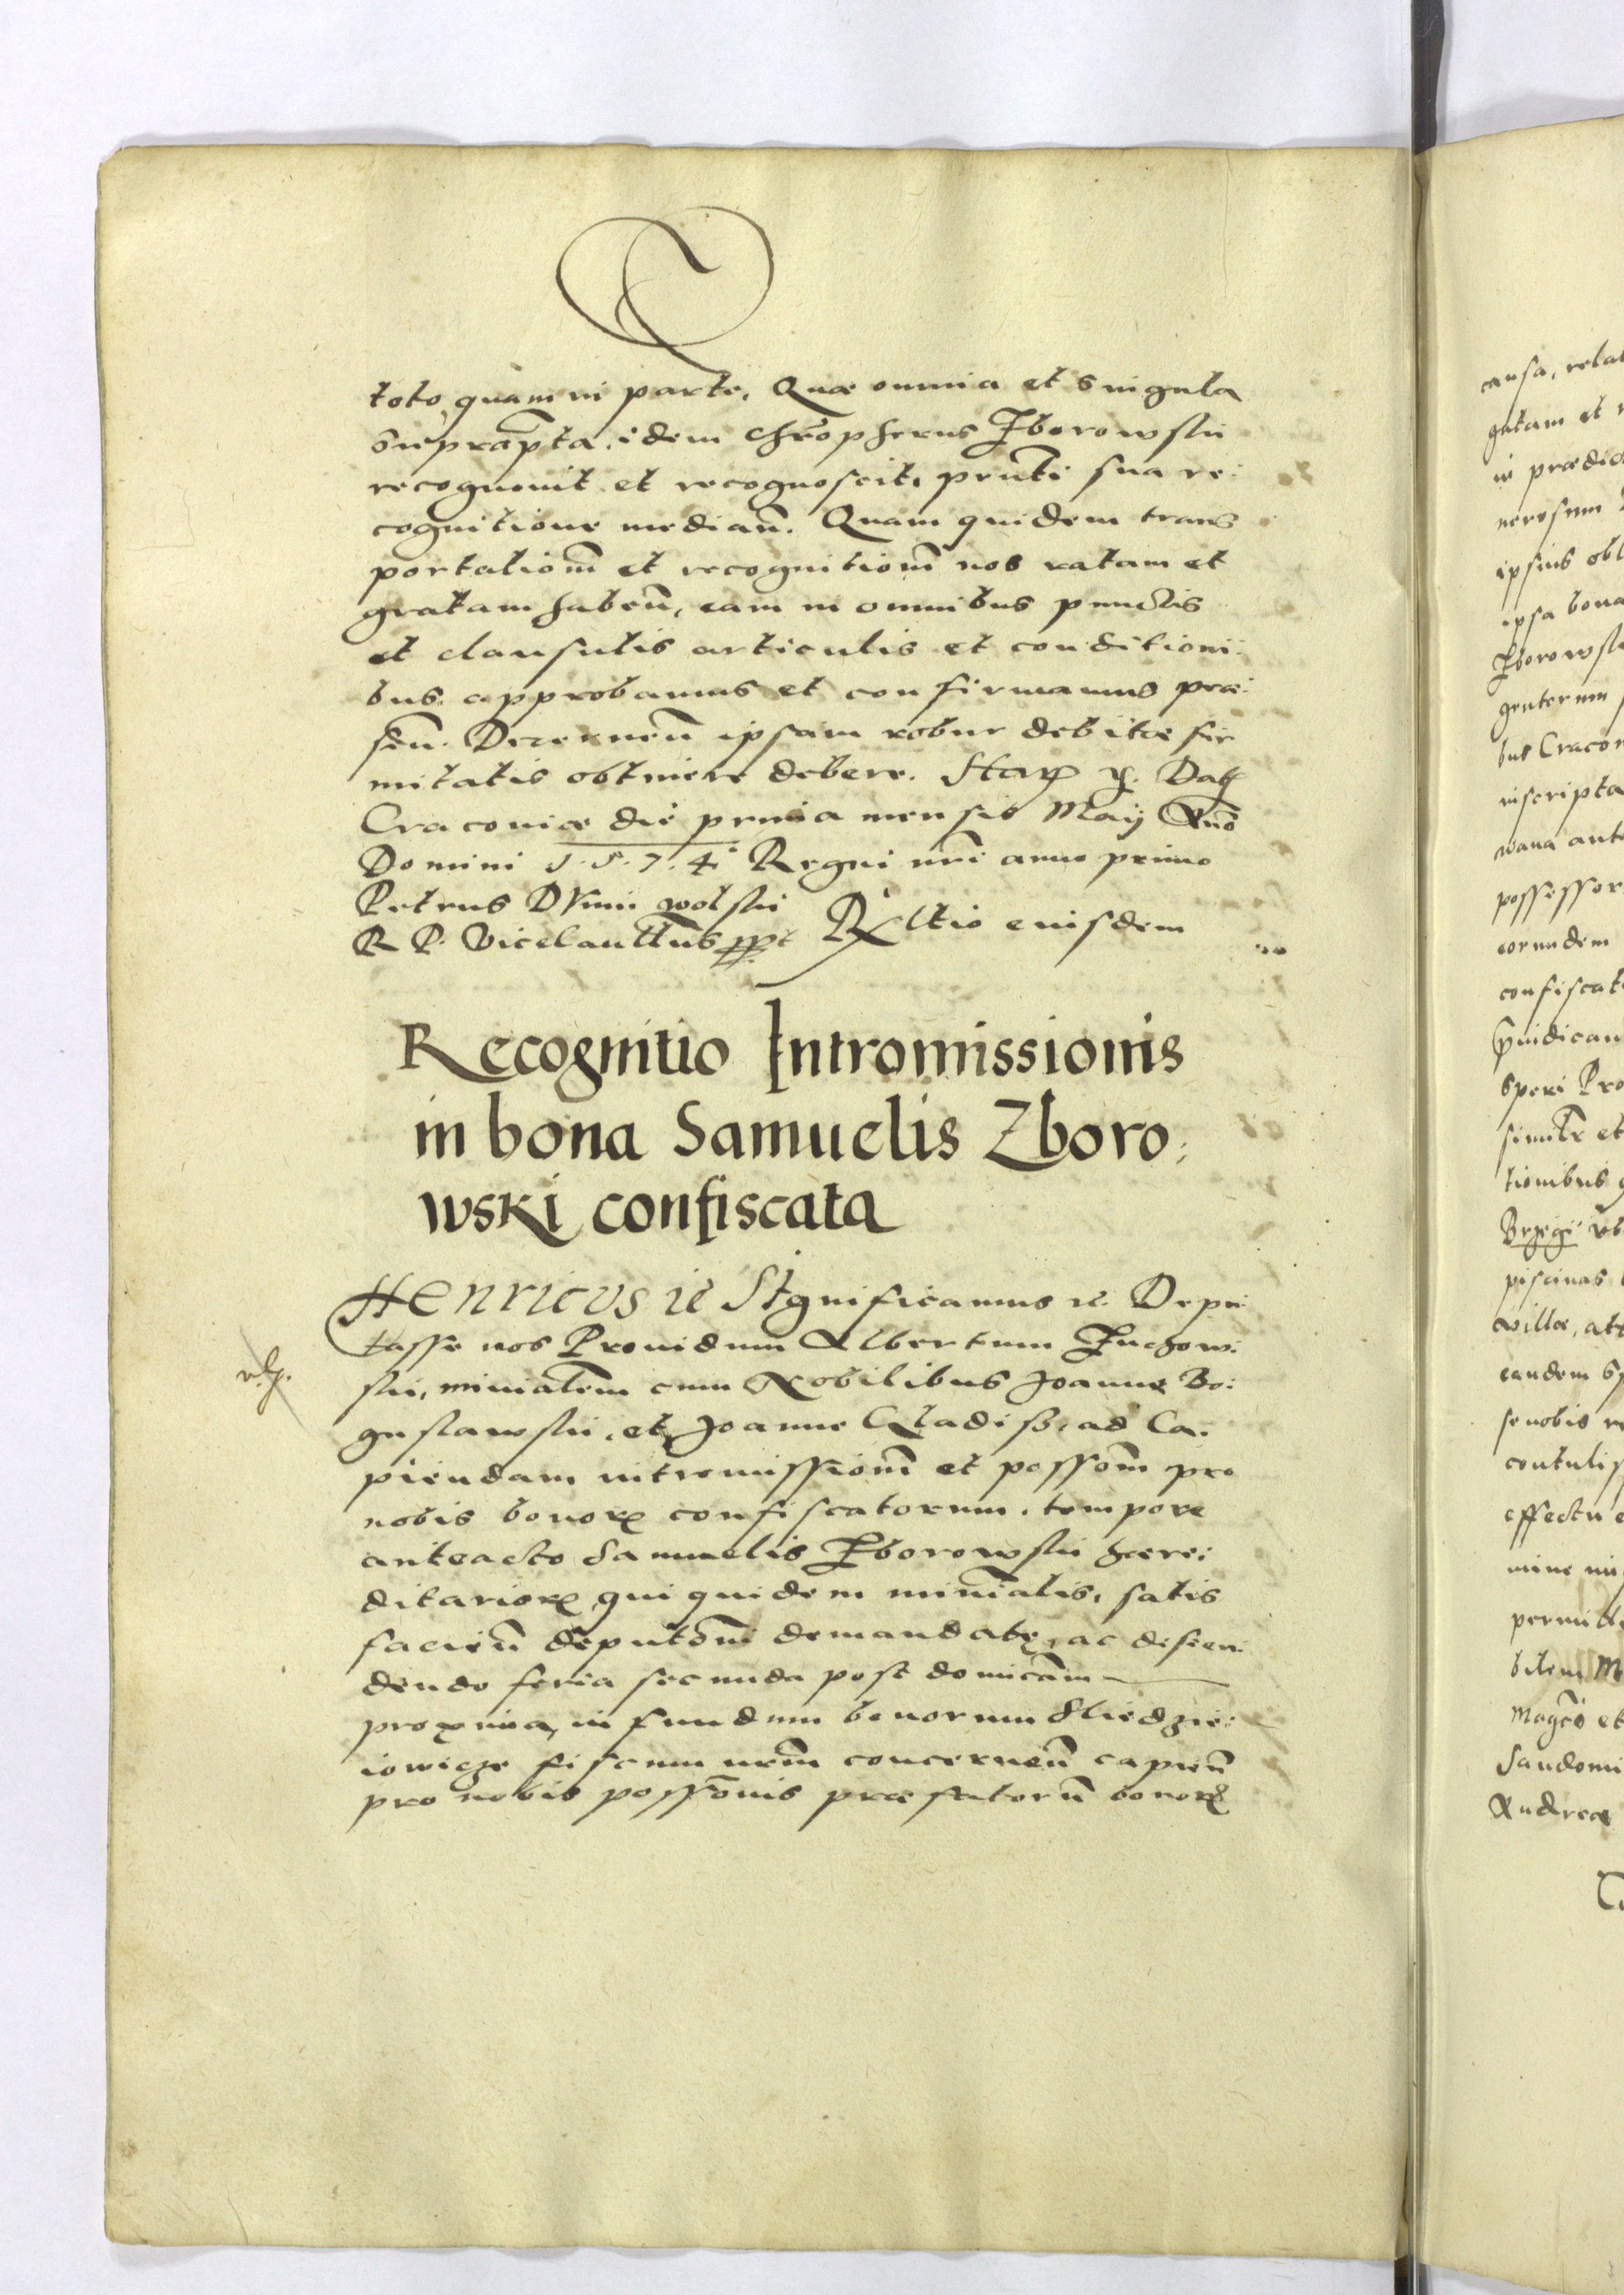 toto quam in parte, Quæ omnia et singula
suprascripta, idem Chrõpherus Zborowski
recognouit et recognoscit, pñti sua re:
cognitione median̄. Quam quidem trans
portationẽ et recognitionẽ nos ratam et
gratam haben̄, eam in omnibus punctis
et clausulis articulis et conditioni:
bus approbamus et confirmamus præ:
sen̄. Decernen̄ ipsam robur debitæ fir
mitatis obtinere debere. Dat
Cracoviæ die prima mensis Maij Anõ
Domini 1.5.7.4. Regni nri anno primo
Petrus Dunin wolski
R P. Vicecancellarius Rltio eiusdem
Recognitio Intromissionis
in bona Samuelis Zboro:
wski confiscata
Henricus ic Significamus ic. Depu:
tasse nos Prouidum Albertum Zuchow:
ski, minialem cum Nobilibus Joanne Bo:
guslawski, et Joanne Gladiss, ad Ca:
piendam intromissionẽ et possõm pro
nobis bonorꝝ confiscatorum, tempore
anteacto Samuelis Zborowski hære:
ditariorꝝ, qui quidem minialis, satis
facien̄ deputõni demandatę, ac disien:
dendo feria secunda post domicam
proxima, in fundum bonorum Sliedzie:
iowicze fiscum nrm concernen̄ capien̄
pro nobis possõnis præfatorũ bonorꝝ
causa, relat
gatam et
in prædic
nerosum
ipsius obl
ipsa bona
Zborowsk
genterum
bus Cracov
inscripta
wana ante
possessor
eorundem
confiscat
speri Pro
similr et
tionibus
Brzegi
piscinas
villæ, at
eandem
se nobis re
contuliss
effectu
mine
permitt
bilem M
Magco et
Sandomi
Andreæ